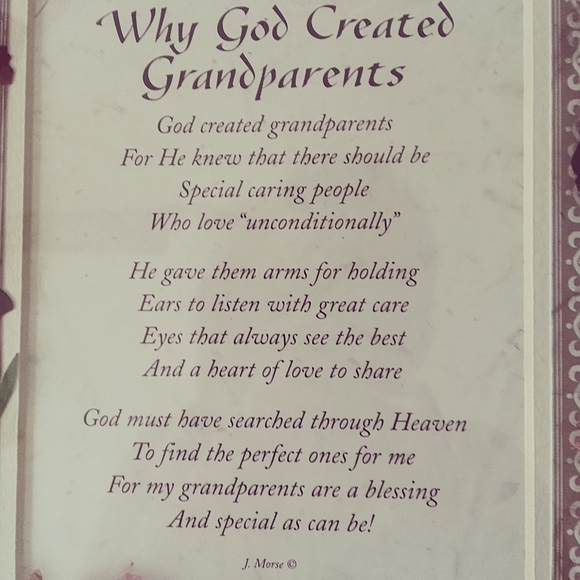 Why God Created
Grandparents
God created grandparents
For He knew that there should be
Special caring people
Who love “unconditionally”
He gave them arms for holding
Ears to listen with great care
Eyes that always see the best
And a heart of love to share
God must have searched through Heaven
To find the perfect ones for me
For my grandparents are a blessing
And special as can be!
J. Morse ©